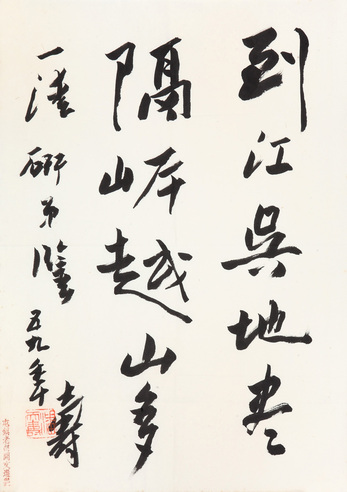 到江吳地盡
隔岸越山多
研弟鑒 五九年 壽